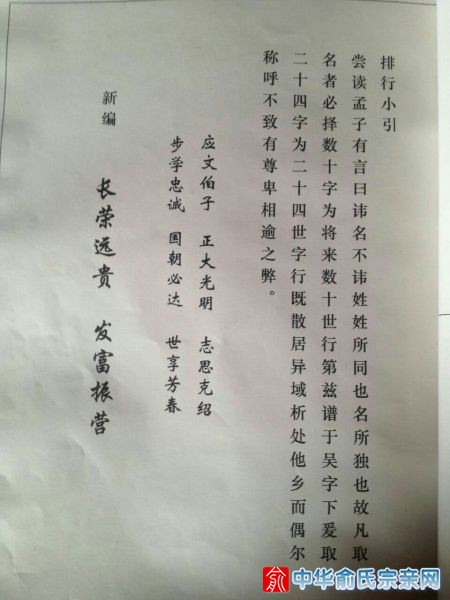 排行小引
尝读孟子有言曰讳名不讳姓姓所同也名所独也故凡取
名者必择数十字为将来数十世行第兹谱于吴字下爰取
二十四字为二十四世字行既散居异域析处他乡而偶尔
称呼不致有尊卑相逾之弊。
应文伯子 正大光明 志思克绍
步学忠诚 国朝必达 世享芳春
新编
长荣远贵 发富振营
俞 中华俞氏宗亲网